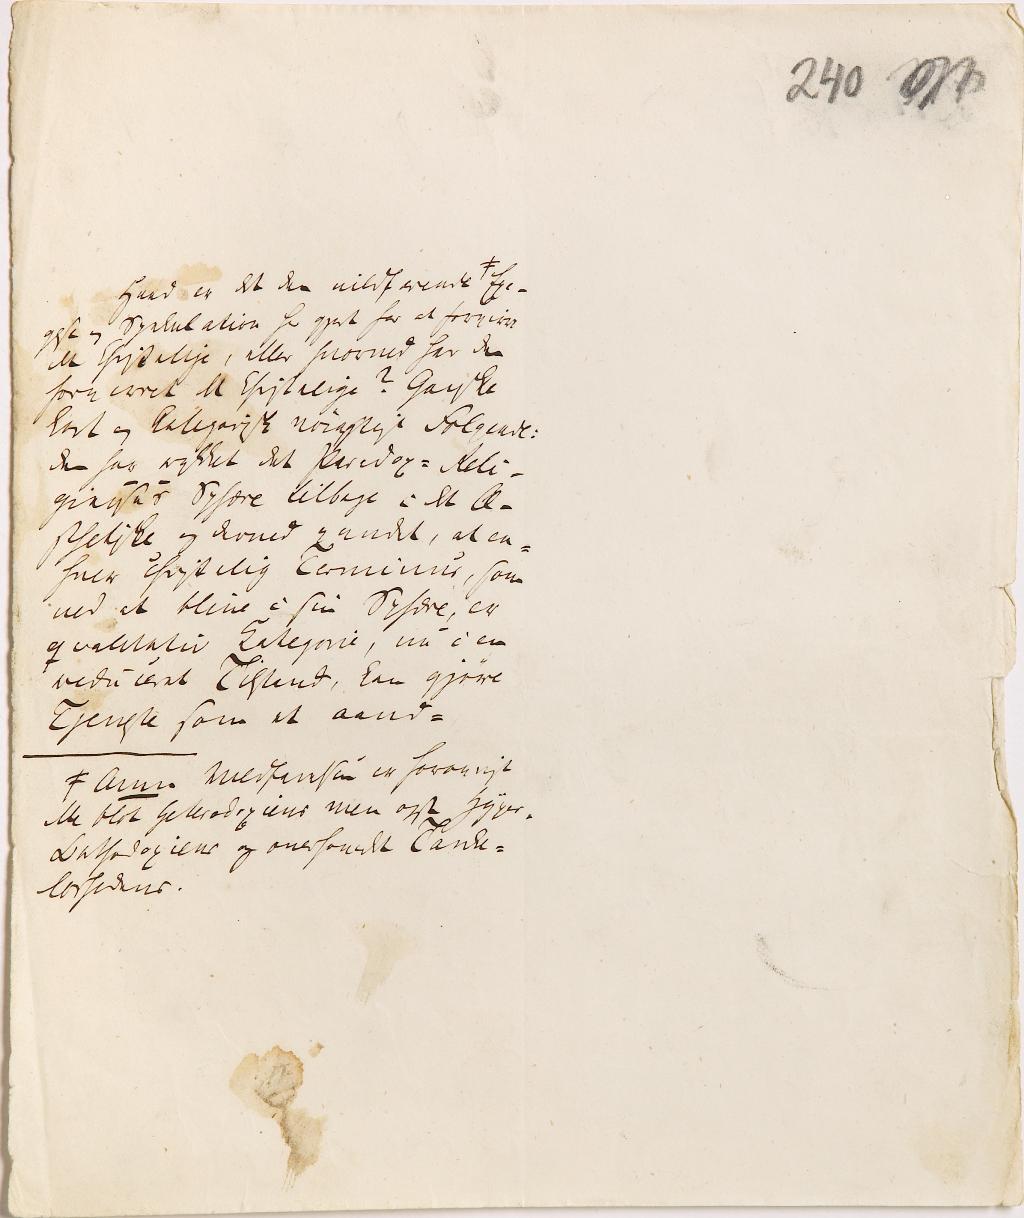 240
Hvad er det den vildfarende ǂ Exe-
gese og Spekulation har gjort for at forvirre
det Christelige, eller hvorved har den
forvirret det Christelige? Ganske
kort og kategorisk nøiagtigt Følgende:
den har rykket det Paradox-Reli-
gieusēs Sphære tilbage i det Æ-
sthetiske og derved vundet, at en-
hver christelig Terminus, som
ved at blive i sin Sphære, er
qvalitativ Kategorie, nu i en
reduceret Tilstand, kan gjøre
Tjeneste som et aand-
ǂ Anm. Vildfarelsen er forøvrigt
ikke blot Heterodoxiens men ogs. Hyper-
Orthodoxiens og overhovedet Tanke-
løshedens.